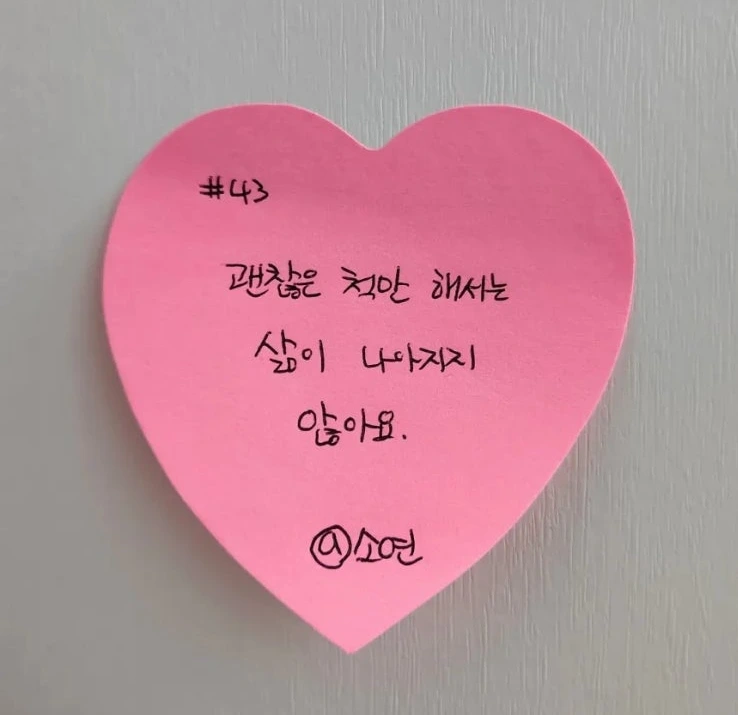 #43
괜찮은 척만 해서는
삶이 나아지지
않아요.
@소연